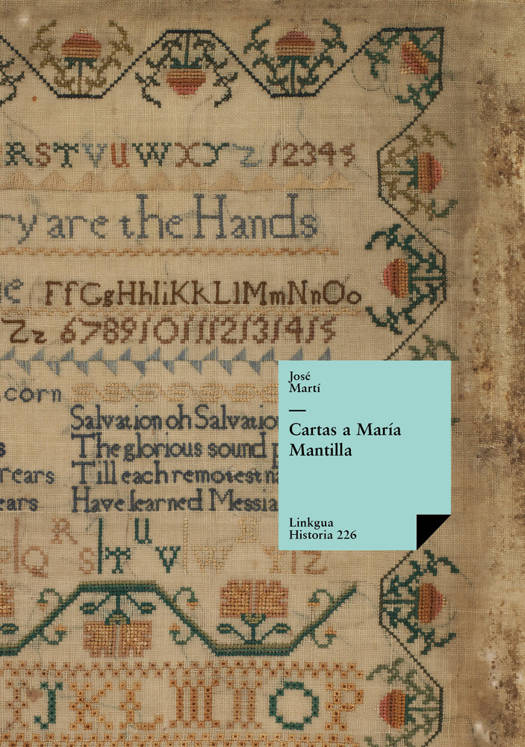 RSTVUWXYZ 12345
ry are the Hands
FfGgHhIiKkLlMmNnOo
Zz 6789101112131415
corn
Salvation oh Salvation
The glorious sound
rears Till each remotest na
ears Have learned Messia
José
Martí
—
Cartas a María
Mantilla
Linkgua
Historia 226
QRSTUVW 12
JKLMNOP